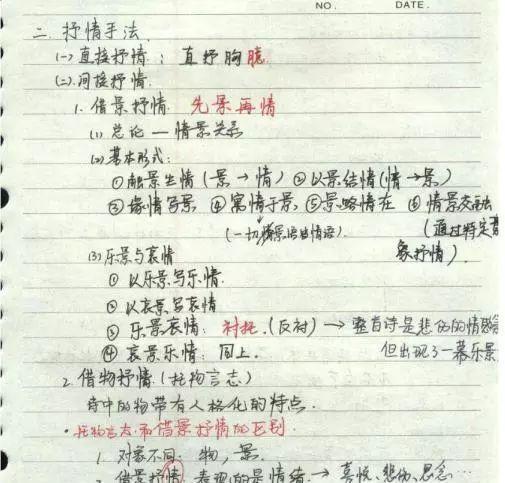 NO. DATE.
二. 抒情手法
(一) 直接抒情: 直抒胸臆
(二). 间接抒情.
1. 借景抒情. 先景再情
(1) 总论 — 情景关系
(2) 基本形式:
① 融景生情 (景→情) ② 以景结情 (情→景)
③ 缘情写景 ④ 寓情于景 ⑤ 景略情在 ⑥ 情景交融
(一切景语皆情语). (通过特定意
象抒情).
(3) 乐景与哀情
① 以乐景写乐情.
② 以哀景写哀情
③ 乐景哀情: 衬托. (反衬) → 整首诗是悲伤的情感
④ 哀景乐情: 同上. 但出现了一幕乐景
2. 借物抒情 (托物言志)
诗中的物带有人格化的特点.
· 托物言志和借景抒情的区别
1. 对象不同. 物, 景.
2. 借景抒情 表现的是情绪. → 喜悦、悲伤、思念…